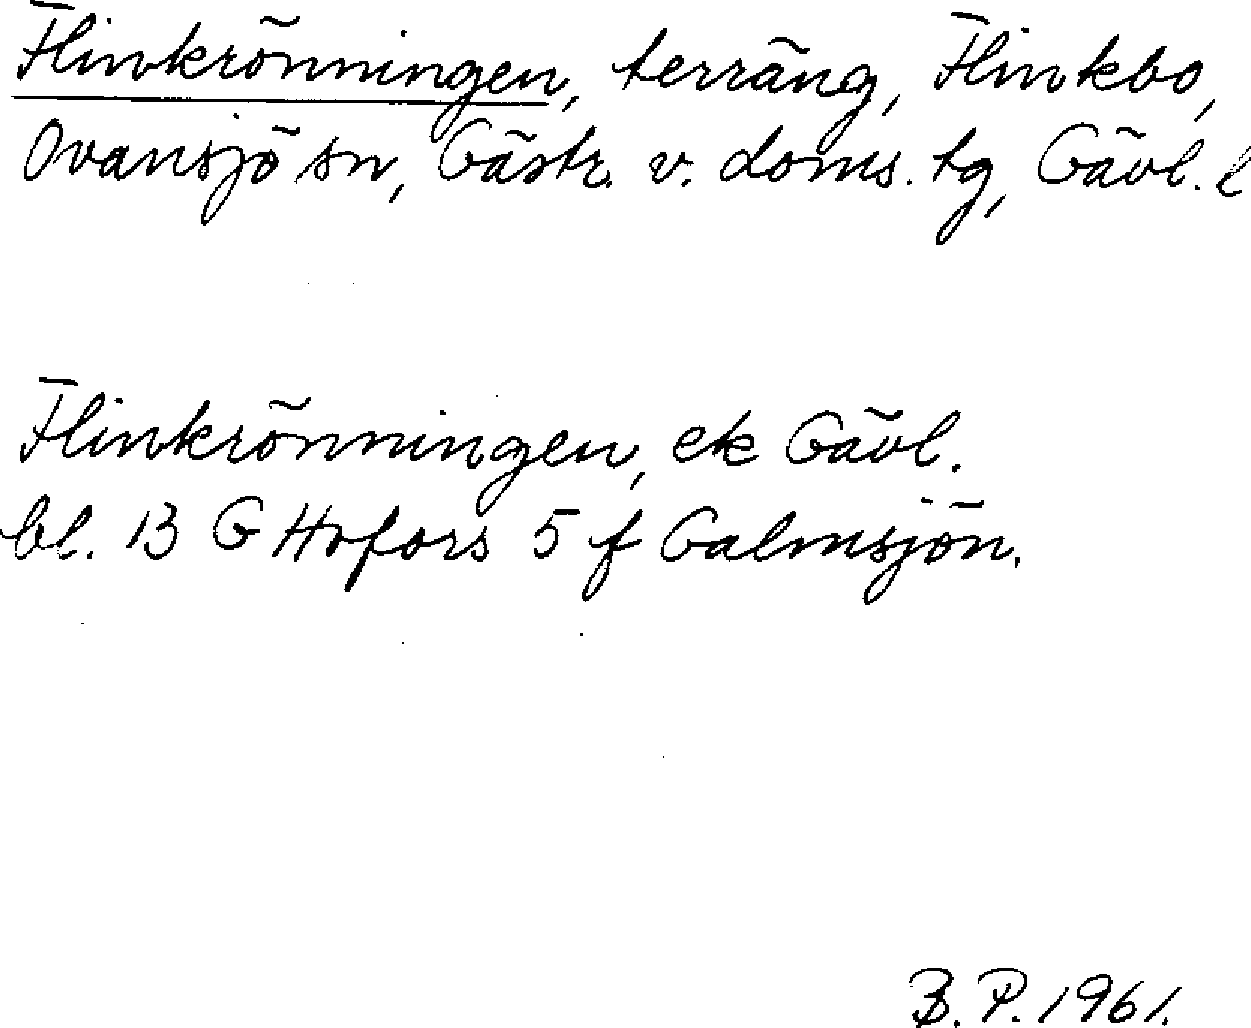 Flinkrönningen, terräng, Flinkbo,
Ovansjö sn, Gästr. v. doms. tg, Gävl. l
Flinkrönningen, ek Gävl.
bl. 13 G Hofors 5 f Galmsjön.
B. P. 1961.